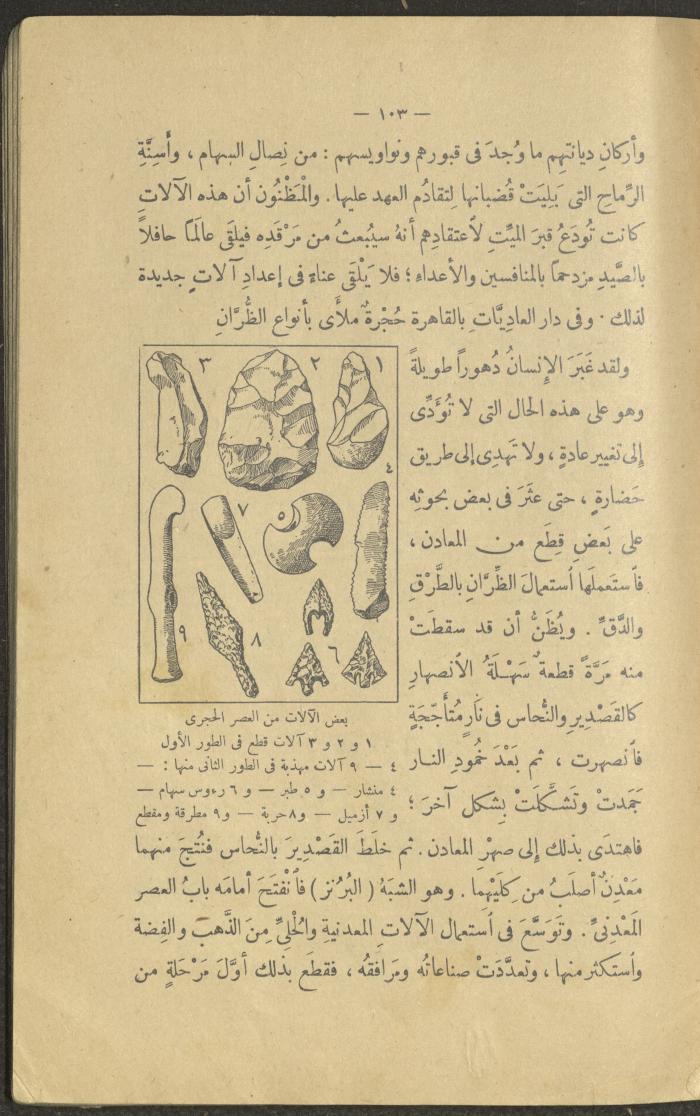 — ١٠٣ —
وأركانِ ديانتهِم ما وُجدَ فى قبورهم ونواويسهم : من نِصالِ السهام ، وأَسِنَّةِ
الرِّماحِ التى بَلِيَتْ قُضبانها لتقادُم العهد عليها . والْمَظْنُون أن هذه الآلاتِ
كانت تُودَعُ قبرَ الميِّتِ لاُعتقادِهم أنهُ سيُبعثُ من مَرْقَدِه فيلقَى عالَماً حافلاً
بالصَّيدِ مزدحماً بالمنافسين والأعداءِ ؛ فلا يَلْقَى عناءً فى إعدادِ آلاتٍ جديدة
لذلك · وفى دار العادِيَّاتِ بالقاهرة حُجْرةٌ ملأَى بأنواع الظُّرَّانِ
ولقد غَبَرَ الإِنسانُ دُهوراً طويلةً
وهو على هذه الحال التى لا تُؤَدِّى
إِلى تغييرِ عادةٍ ، ولا تَهدِى إلى طريق
حَضارةٍ ، حتى عثَرَ فى بعض بحوثِه
على بَعضِ قِطَع من المعادن ،
فاُستَعملَها اُستعمالَ الظِّرَّانِ بالطَّرْقِ
والدَّقِّ . ويُظَنُّ أن قد سقطَتْ
منه مَرَّةً قطعةٌ سَهْلَةُ الاُنصهارِ
كالقَصْديرِ والنُّحاس فى نارٍ مُتأَجِّجَةٍ
فاُنصهرت ، ثم بَعْدَ خُمودِ النار
جَمَدتْ وتَشكَّلَتْ بِشكل آخرَ ؛
١
٢
٣
٤
٥
٧
٩
٨
٦
بعض الآلات من العصر الحجرى
١ و ٢ و ٣ آلات قطع فى الطور الأول
٤ — ٩ آلات مهذبة فى الطور الثانى منها : —
٤ منشار — و ٥ طبر — و ٦ رءوس سهام —
و ٧ أزميل — و ٨ حربة — و ٩ مطرقة ومقطع
فاهتدَى بذلك إلى صهْرِ المعادن . ثم خلَطَ القَصْديرَ بالنُّحاس فنُتجَ منهما
مَعْدِنٌ أصلَبُ من كِلَيْهِما . وهو الشبَهُ ( البُرُنز ) فاُنْفتَحَ أمامَه بابُ العصر
المَعْدِنىِّ . وتَوَسَّعَ فى اُستعمال الآلاتِ المعدنيةِ والحُلِىِّ مِنَ الذَّهب والفِضة
واُستكثر منها ، وتعدَّدَتْ صناعاتُه ومَرافقُه ، فقطَع بذلك أوَّلَ مَرْحَلةٍ من